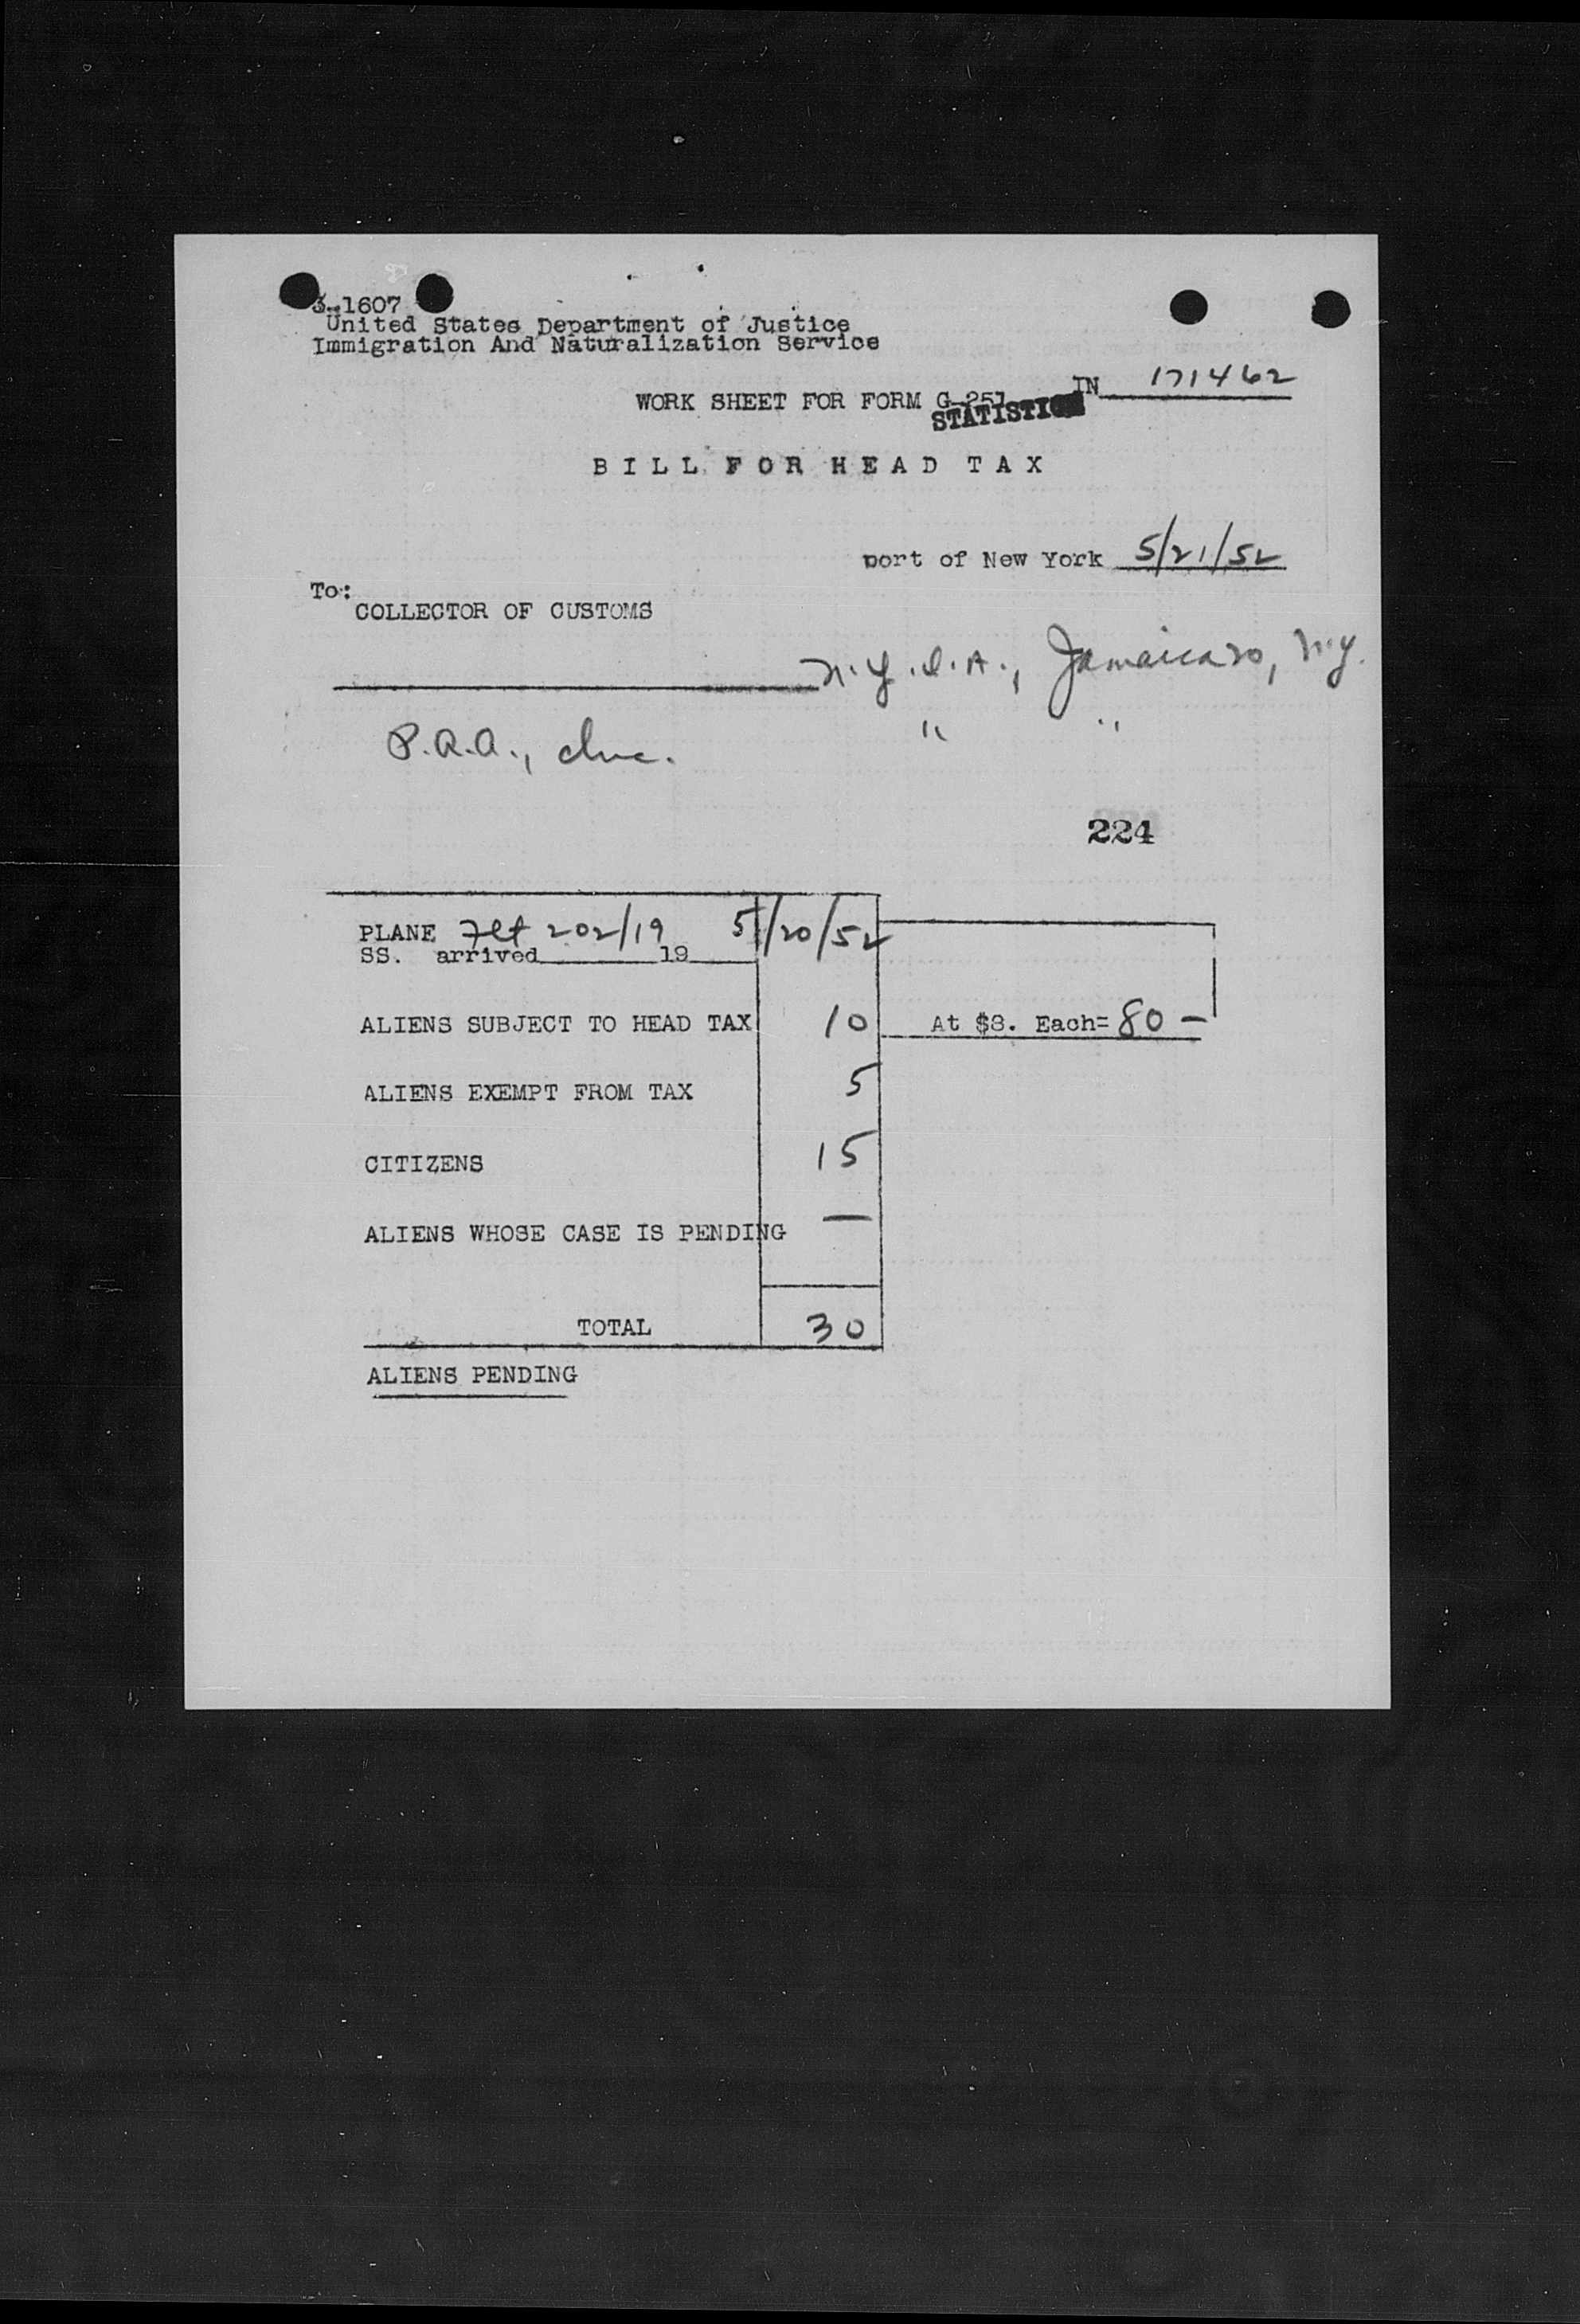 3-1607
United States Department of Justice
Immigration And Naturalization Service
IN 171462
WORK SHEET FOR FORM G-251
STATISTICS
BILL FOR HEAD TAX
port of New York 5/21/52
To:
COLLECTOR OF CUSTOMS
N.Y.I.A., Jamaica 30, N.Y.
P.A.A., Inc. " "
224
PLANE Flt 202/19 5/20/52
SS. arrived 19
ALIENS SUBJECT TO HEAD TAX 10 At $8. Each= 80 —
ALIENS EXEMPT FROM TAX 5
CITIZENS 15
ALIENS WHOSE CASE IS PENDING —
TOTAL 30
ALIENS PENDING